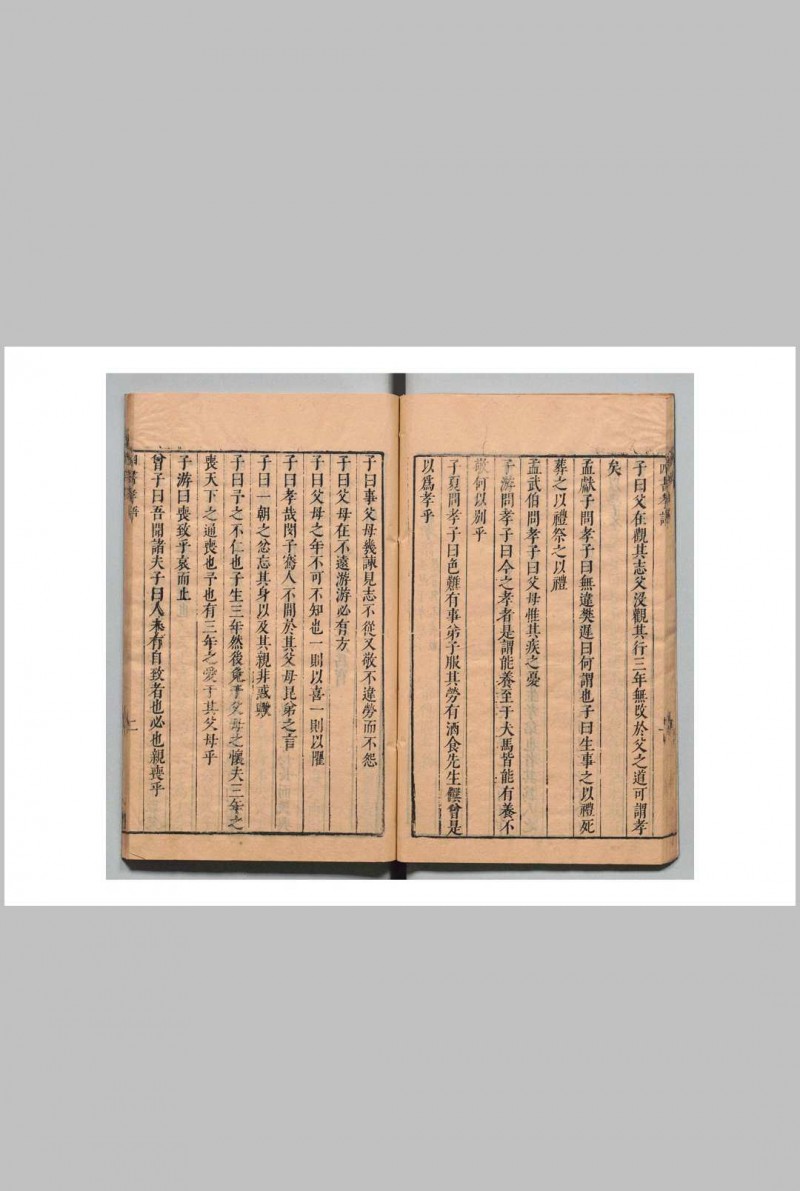 子曰父在觀其志父沒觀其行三年無改於父之道可謂孝
矣
孟獻子問孝子曰無違樊遲曰何謂也子曰生事之以禮死
葬之以禮祭之以禮
孟武伯問孝子曰父母惟其疾之憂
子游問孝子曰今之孝者是謂能養至于犬馬皆能有養不
敬何以別乎
子夏問孝子曰色難有事弟子服其勞有酒食先生饌曾是
以爲孝乎
子曰事父母幾諫見志不從又敬不違勞而不怨
子曰父母在不遠游游必有方
子曰父母之年不可不知也一則以喜一則以懼
子曰孝哉閔子騫人不間於其父母昆弟之言
子曰一朝之忿忘其身以及其親非惑歟
子曰予之不仁也子生三年然後免于父母之懷夫三年之
喪天下之通喪也予也有三年之愛于其父母乎
子游曰喪致乎哀而止
曾子曰吾聞諸夫子曰人未有自致者也必也親喪乎
四書孝語
二